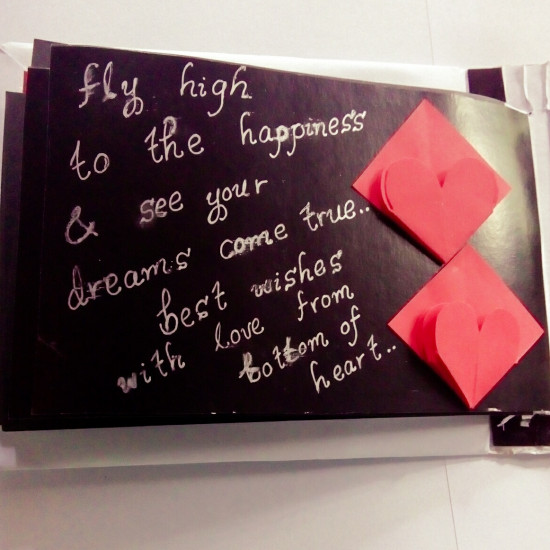 fly high
to the happiness
& see your
dreams come true..
best wishes
with love from
bottom of
heart..